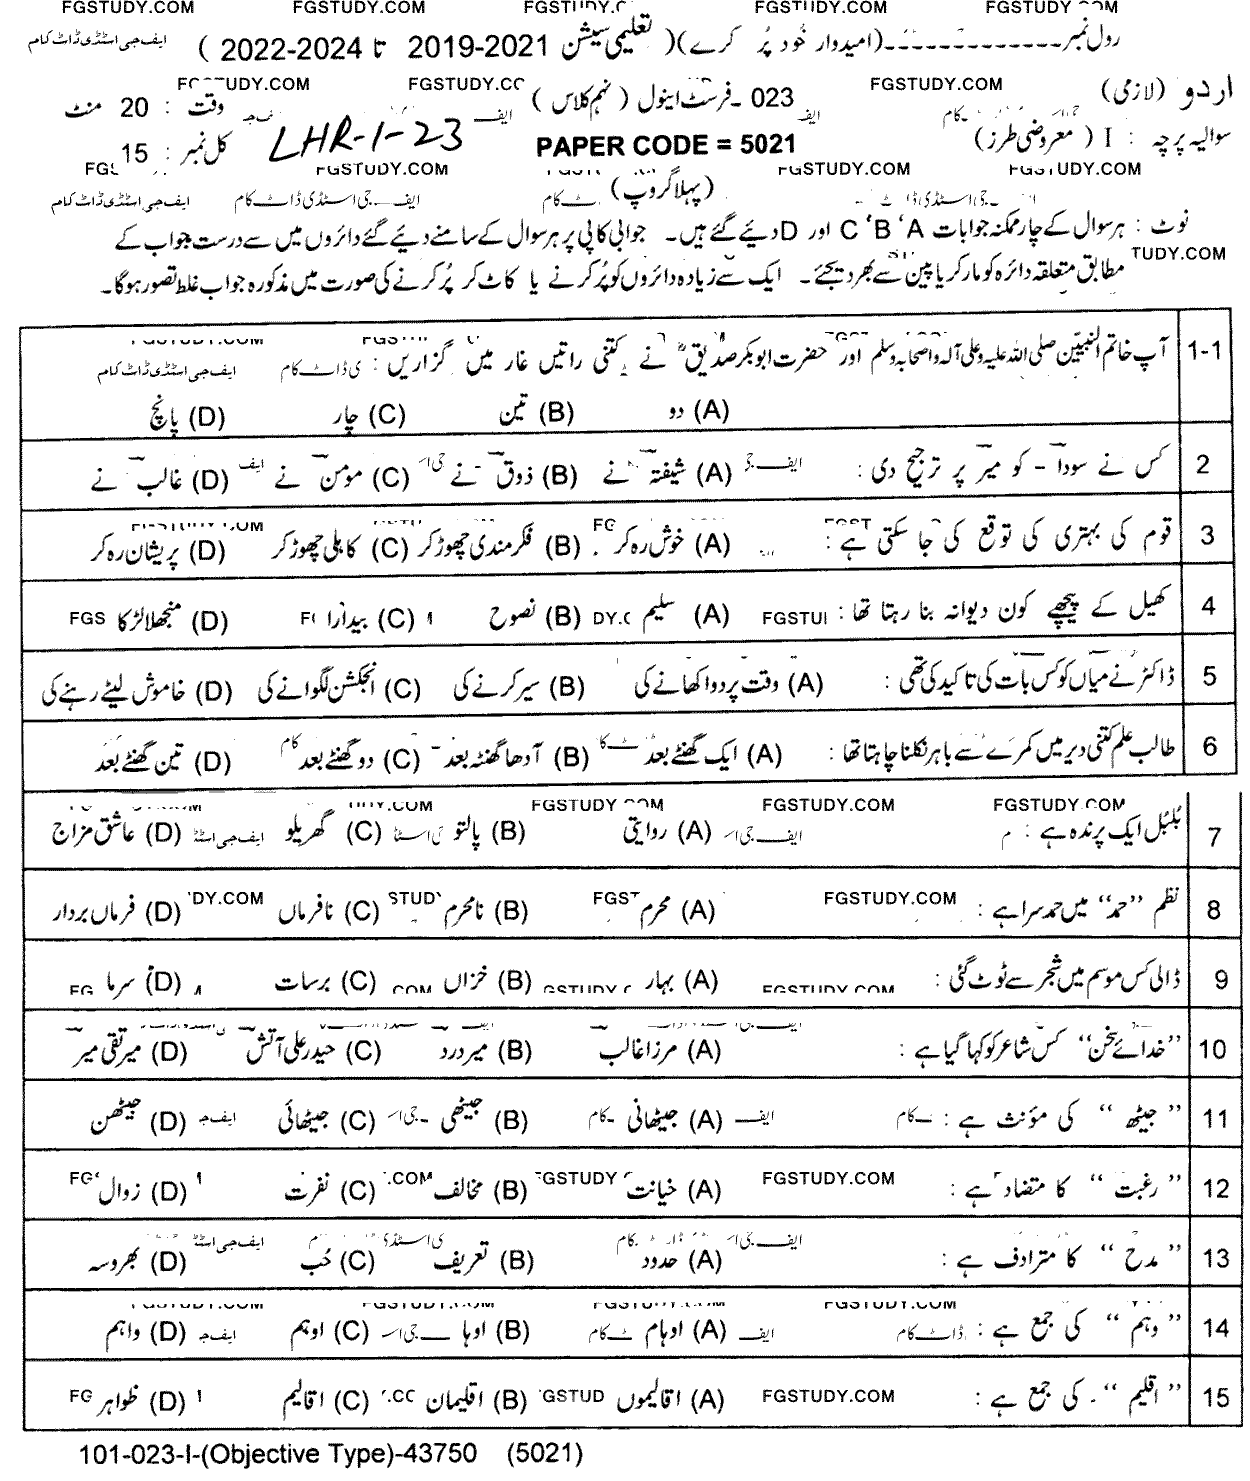 FGSTUDY.COM FGSTUDY.COM FGSTUDY.COM FGSTUDY.COM
رول نمبر۔۔۔۔۔۔۔۔۔۔۔۔(امیدوار خُود پُر کرے)( تعلیمی سیشن 2021-2019 تا 2024-2022 ) ایف جی اسٹڈی ڈاٹ کام
FGSTUDY.COM FGSTUDY.COM FGSTUDY.COM
اردو (لازمی) 023 ۔فرسٹ اینول ( نہم کلاس ) وقت : 20 منٹ
سوالیہ پرچہ : I ( معروضی طرز) PAPER CODE = 5021 LHR-1-23 کل نمبر : 15
FGSTUDY.COM FGSTUDY.COM
(پہلا گروپ)
جی اسٹڈی ڈاٹ کام ایف جی اسٹڈی ڈاٹ کام ایف جی اسٹڈی ڈاٹ کام
نوٹ : ہر سوال کے چار ممکنہ جوابات A ‘ B ‘ C اور D دیئے گئے ہیں۔ جوابی کاپی پر ہر سوال کے سامنے دیئے گئے دائروں میں سے درست جواب کے
TUDY.COM مطابق متعلقہ دائرہ کو مارکر یا پین سے بھر دیجئے۔ ایک سے زیادہ دائروں کو پُر کرنے یا کاٹ کر پُر کرنے کی صورت میں مذکورہ جواب غلط تصور ہوگا۔
1-1 آپ خاتم النبیّین صلی اللہ علیہ وعلی آلہ واصحابہ وسلم اور حضرت ابوبکر صدیقؓ نے کتنی راتیں غار میں گزاریں : ایف جی اسٹڈی ڈاٹ کام
(A) دو (B) تین (C) چار (D) پانچ
2 کس نے سوداؔ - کو میرؔ پر ترجیح دی : (A) شیفتہؔ نے (B) ذوقؔ نے (C) مومنؔ نے (D) غالبؔ نے
3 قوم کی بہتری کی توقع کی جاسکتی ہے : (A) خوش رہ کر (B) فکرمندی چھوڑ کر (C) کاہلی چھوڑ کر (D) پریشان رہ کر
4 کھیل کے پیچھے کون دیوانہ بنا رہتا تھا : (A) سلیم (B) نصوح (C) بیدارا (D) منجھلا لڑکا
5 ڈاکٹر نے میاں کو کس بات کی تاکید کی تھی : (A) وقت پر دوا کھانے کی (B) سیر کرنے کی (C) انجکشن لگوانے کی (D) خاموش لیٹے رہنے کی
6 طالب علم کتنی دیر میں کمرے سے باہر نکلنا چاہتا تھا : (A) ایک گھنٹے بعد (B) آدھا گھنٹہ بعد (C) دو گھنٹے بعد (D) تین گھنٹے بعد
FGSTUDY.COM FGSTUDY.COM FGSTUDY.COM
7 بُلبُل ایک پرندہ ہے : (A) روایتی (B) پالتو (C) گھریلو (D) عاشق مزاج
8 نظم ’’حمد‘‘ میں حمد سرا ہے : FGSTUDY.COM (A) محرم (B) نامحرم (C) نافرماں (D) فرماں بردار
9 ڈالی کس موسم میں شجر سے ٹوٹ گئی : FGSTUDY.COM (A) بہار (B) خزاں (C) برسات (D) سرما
10 ’’خدائے سخن‘‘ کس شاعر کو کہا گیا ہے : (A) مرزا غالب (B) میر درد (C) حیدر علی آتش (D) میر تقی میر
11 ’’ جیٹھ ‘‘ کی مؤنث ہے : (A) جیٹھانی (B) جیٹھی (C) جیٹھائی (D) جیٹھن
12 ’’ رغبت ‘‘ کا متضاد ہے : FGSTUDY.COM (A) خیانت (B) مخالف (C) نفرت (D) زوال
13 ’’ مدح ‘‘ کا مترادف ہے : (A) حدود (B) تعریف (C) حُب (D) بھروسہ
14 ’’ وہم ‘‘ کی جمع ہے : (A) اوہام (B) اوہا (C) اوہم (D) واہم
15 ’’ اقلیم ‘‘ کی جمع ہے : FGSTUDY.COM (A) اقالیموں (B) اقلیمان (C) اقالیم (D) ظواہر
101-023-I-(Objective Type)-43750 (5021)